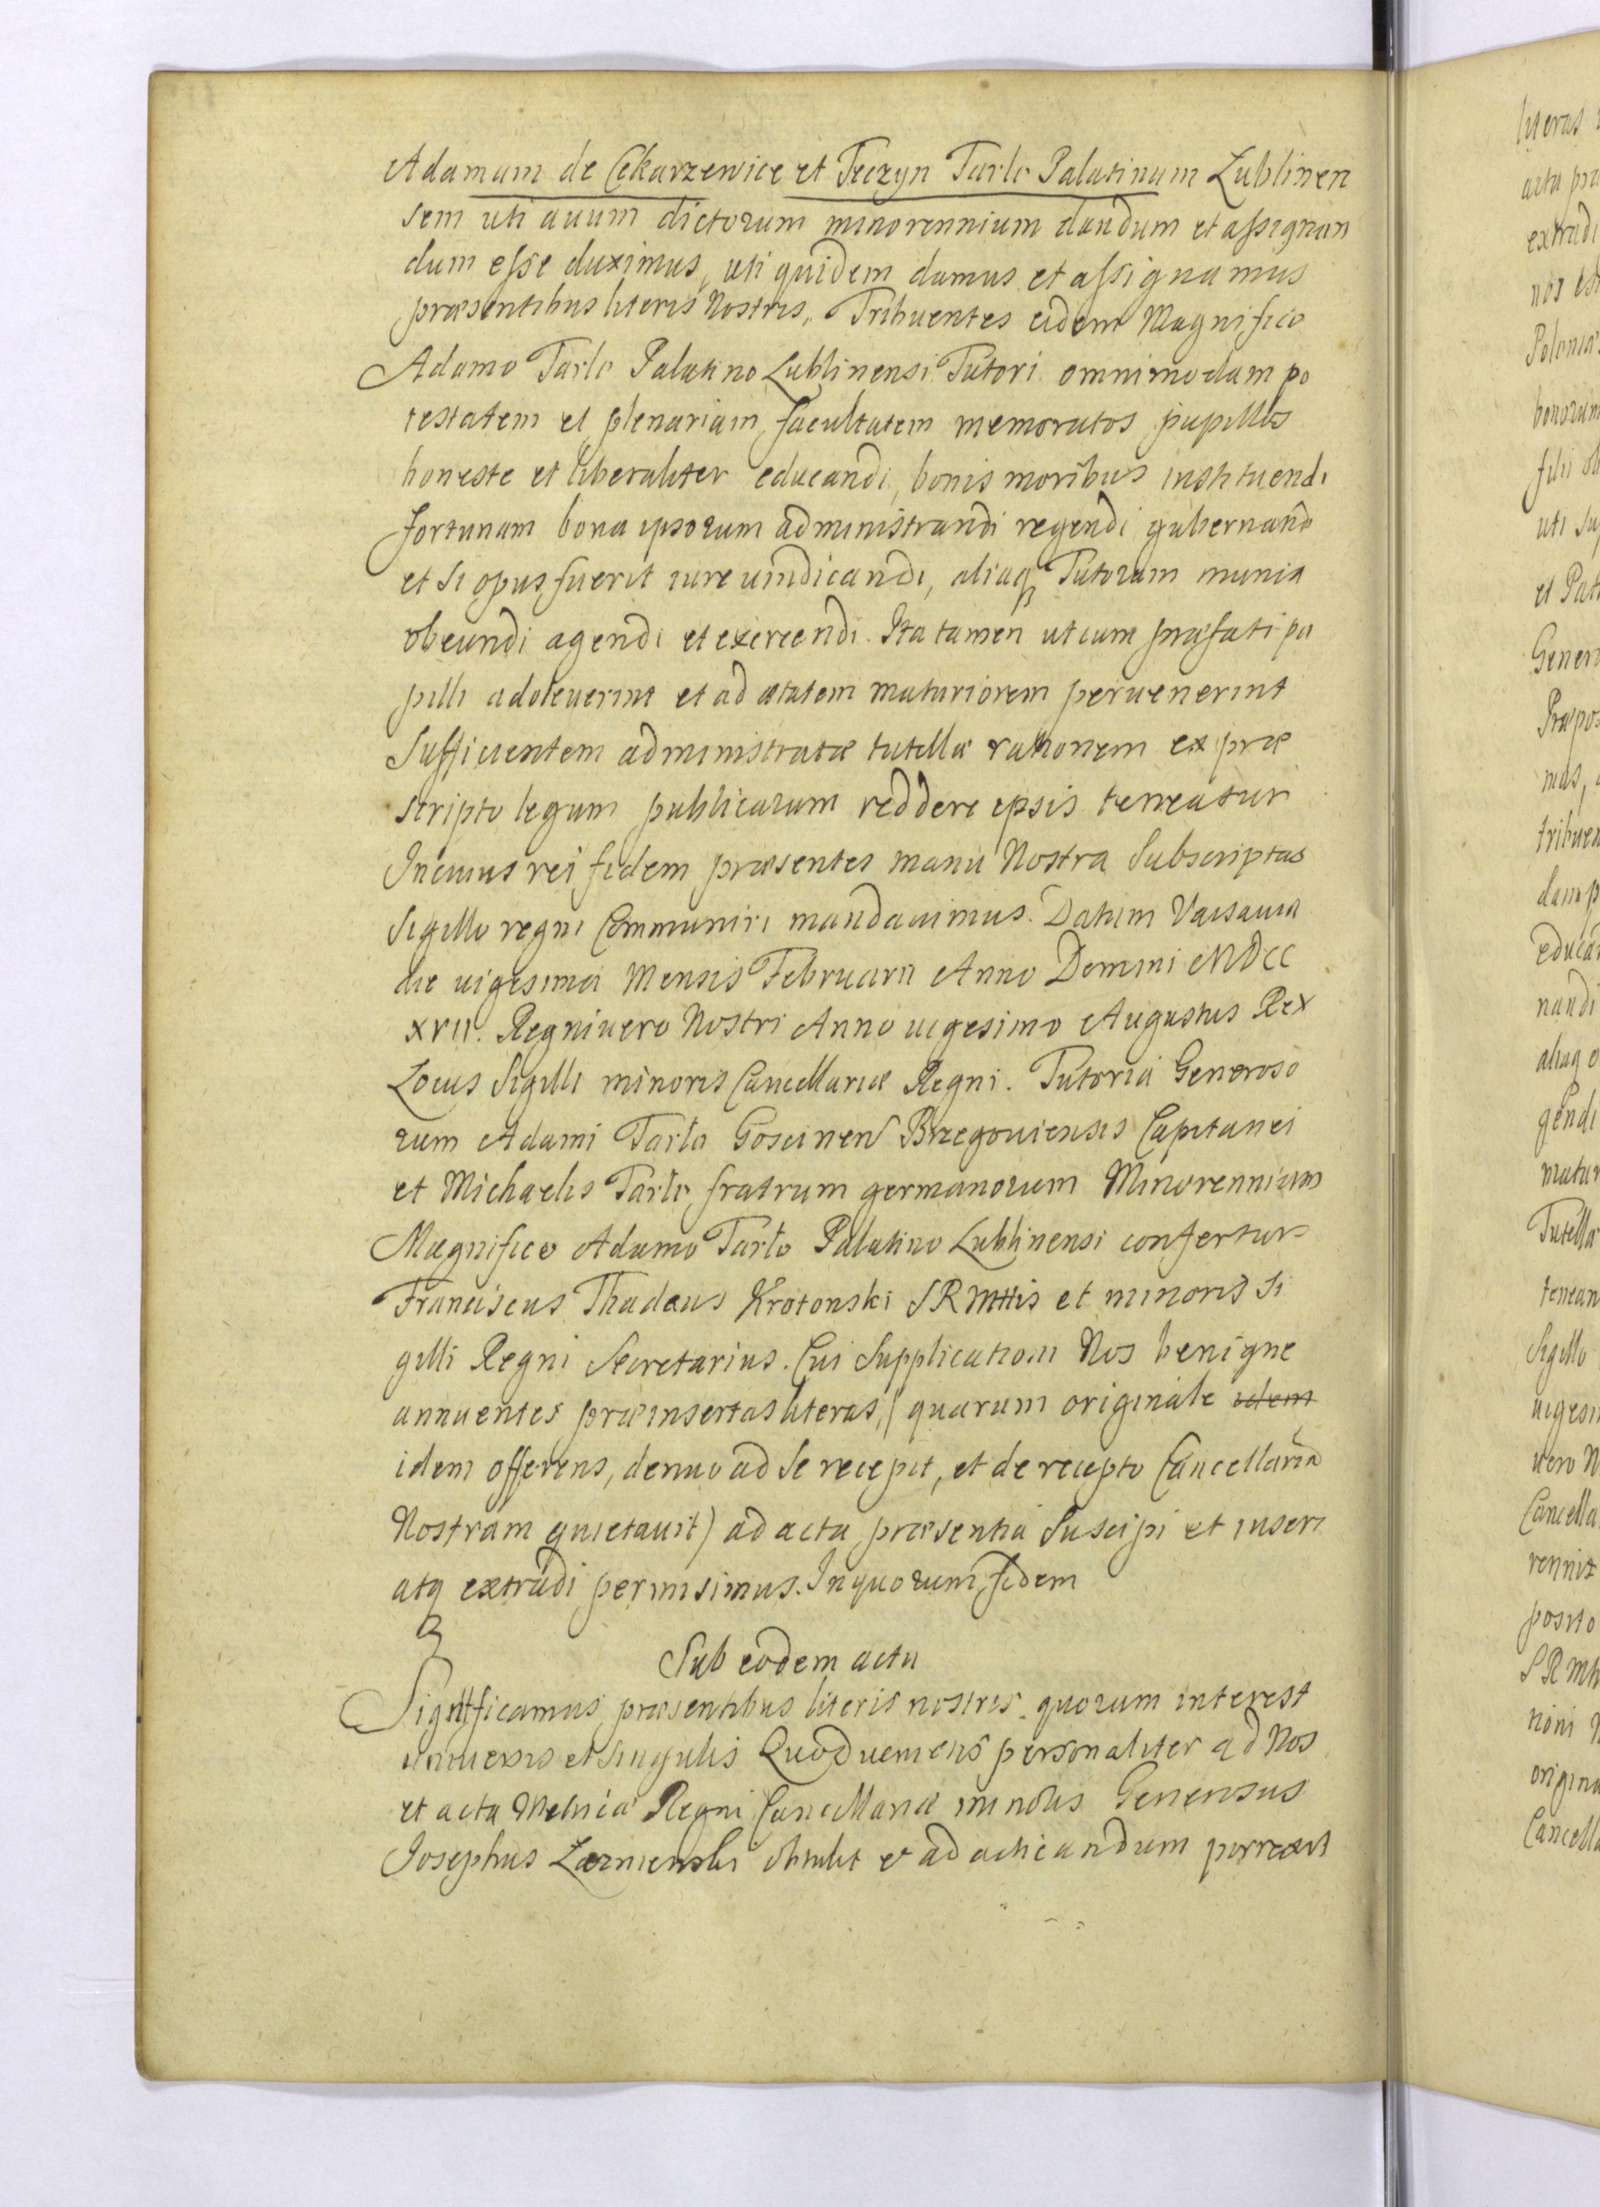 Adamum de Czekarzewice et Teczyn Tarlo Palatinum Lublinen
sem uti auum dictorum minorennium dandum et assignan
dum esse duximus, uti quidem damus et assignamus
præsentibus literis Nostris, Tribuentes eidem Magnifico
Adamo Tarlo Palatino Lublinensi Tutori omnimodam po
testatem et plenariam facultatem memoratos pupillos
honeste et liberaliter educandi, bonis moribus instituendi
fortunam bona ipsorum administrandi regendi gubernandi
et si opus fuerit iure uindicandi, aliaq Tutorum munia
obeundi agendi et exercendi. Ita tamen ut cum præfati pu
pilli adoleuerint et ad ætatem maturiorem peruenerint
Sufficientem administratæ tutellæ rationem ex præ
scripto legum publicarum reddere ipsis teneatur
In cuius rei fidem præsentes manu Nostra Subscriptas
Sigillo regni Communiri mandauimus. Datum Varsauiæ
die uigesima Mensis Februarii Anno Domini MDCC
XVII. Regni uero Nostri Anno uigesimo Augustus Rex
Locus Sigilli minoris Cancellariæ Regni. Tutoria Generoso
rum Adami Tarło Goscinen Brzegouiensis Capitanei
et Michaelis Tarło fratrum germanorum Minorennium
Magnifico Adamo Tarło Palatino Lublinensi confertur
Franciscus Thadæus Krotonski SRMttis et minoris Si
gilli Regni Secretarius. Cui Supplicationi Nos benigne
annuentes præinsertas literas, (quarum originale idem
idem offerens, denuo ad se recepit, et de recepto Cancellariã
Nostram quietauit) ad acta præsentia Suscipi et inseri
atq extradi permisimus. In quorum fidem
Sub eodem actu
Significamus præsentibus literis nostris quorum interest
uniuersis et singulis Quod ueniens personaliter ad Nos
et acta Metricæ Regni Cancellariæ minoris Generosus
Josephus obtulit et ad acticandum porrexit
literas
acta præ
extradi
nos
Poloniæ
bonorum
filii
uti
et Pat
Genero
Præpos
mus,
tribuen
dam p
educan
nandi
aliaq o
gendi
matur
Tutellæ
tenean
Sigillo
uigesi
uero N
Cancella
rennit
posito
SRMtt
tioni N
origina
Cancella